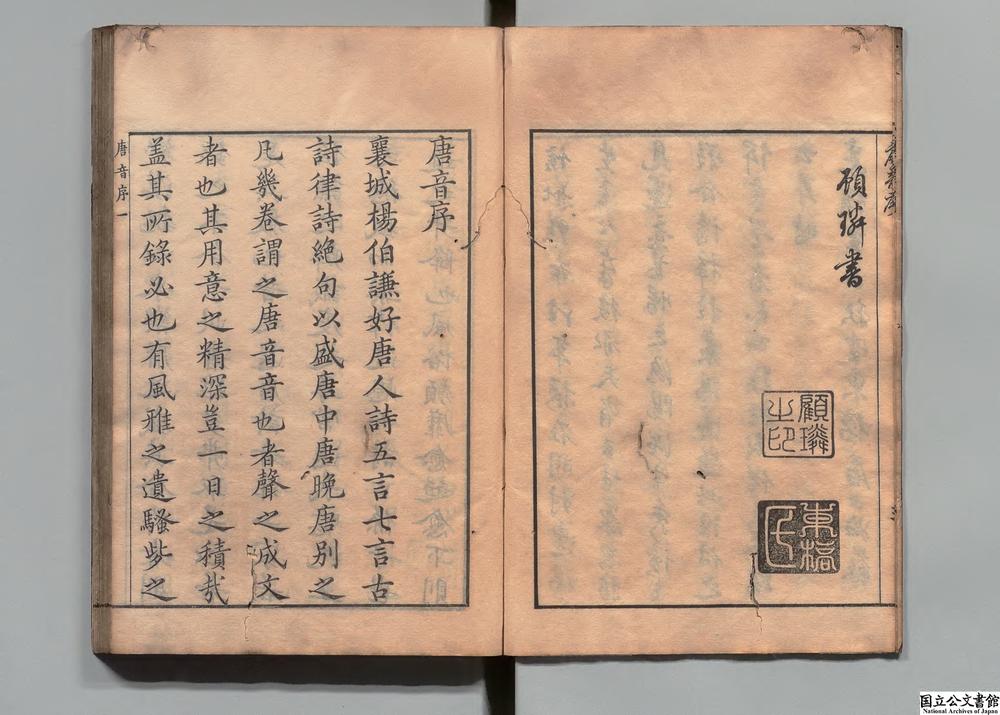 顧璘書
顧璘之印
東橋氏
唐音序
襄城楊伯謙好唐人詩五言七言古
詩律詩絶句以盛唐中唐晚唐別之
凡幾卷謂之唐音音也者聲之成文
者也其用意之精深豈一日之積㢤
盖其所錄必也有風雅之遺騷些之
唐音序一
国立公文書館
National Archives of Japan